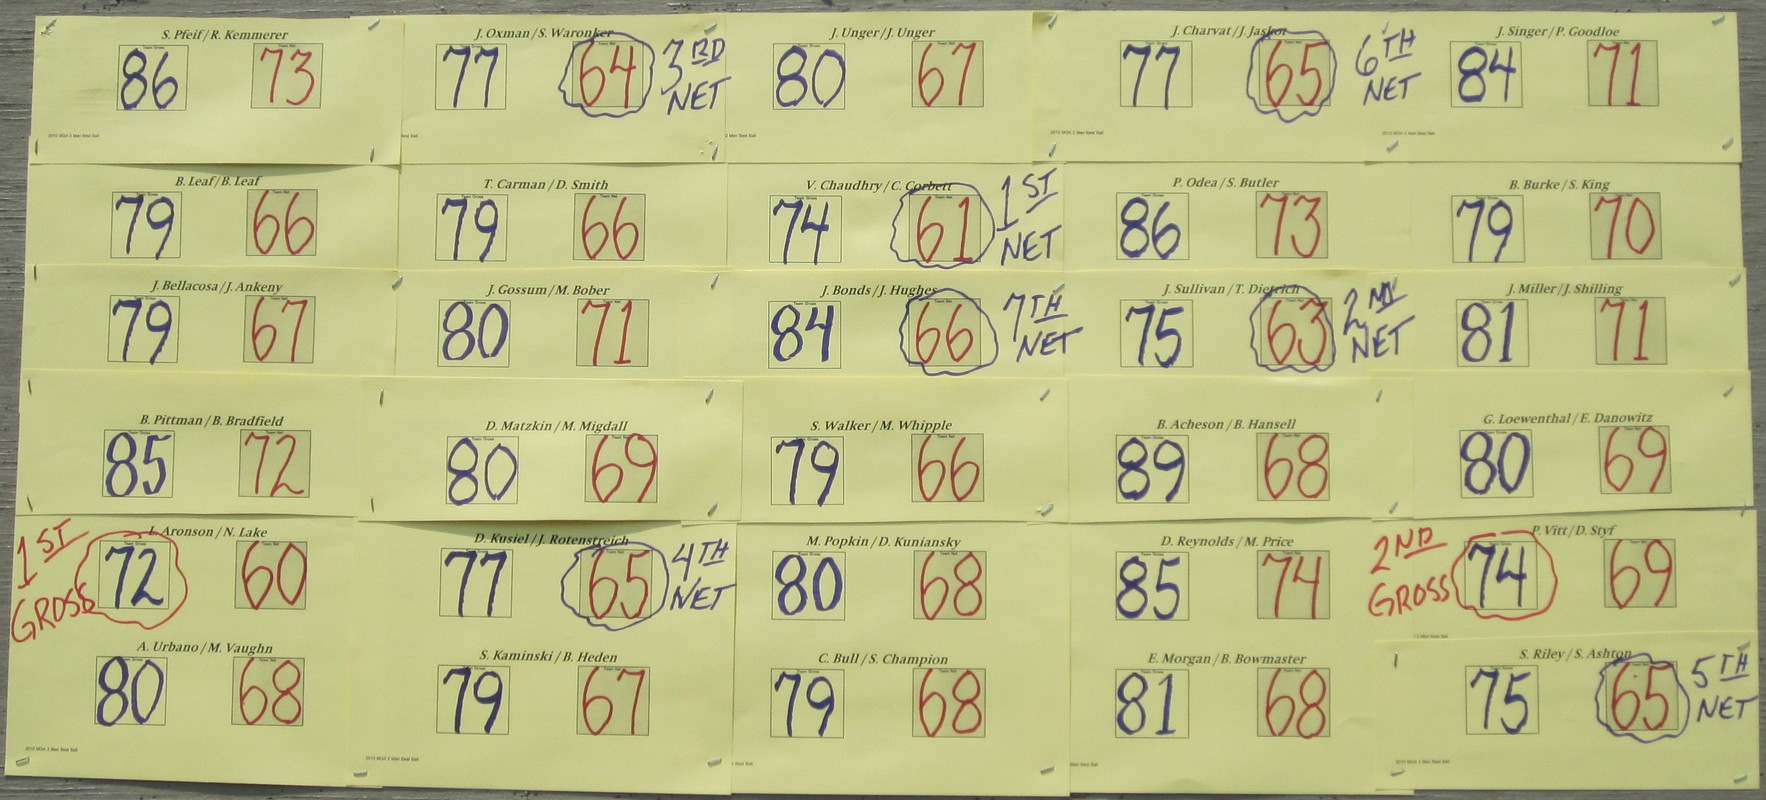 S. Pfeif/R. Kemmerer
Team Gross Team Net
86 73
2010 MGA 2 Man Best Ball
J. Oxman/S. Waronker
77 64 3RD NET
J. Unger/J. Unger
80 67
J. Charvat/J. Jaskot
77 65 6TH NET
2010 MGA 2 Man Best Ball
J. Singer/P. Goodloe
84 71
2010 MGA 2 Man Best Ball
B. Leaf/B. Leaf
79 66
T. Carman/D. Smith
79 66
V. Chaudhry/C. Corbett
74 61 1ST NET
P. Odea/S. Butler
86 73
B. Burke/S. King
79 70
J. Bellacosa/J. Ankeny
79 67
J. Gossum/M. Bober
80 71
J. Bonds/J. Hughes
84 66 7TH NET
J. Sullivan/T. Dietrich
75 63 2ND NET
J. Miller/J. Shilling
81 71
B. Pittman/B. Bradfield
85 72
D. Matzkin/M. Migdall
80 69
S. Walker/M. Whipple
79 66
B. Acheson/B. Hansell
89 68
G. Loewenthal/E. Danowitz
80 69
L. Aronson/N. Lake
1ST GROSS 72 60
D. Kusiel/J. Rotenstreich
77 65 4TH NET
M. Popkin/D. Kuniansky
80 68
D. Reynolds/M. Price
85 74
P. Vitt/D. Styf
2ND GROSS 74 69
A. Urbano/M. Vaughn
80 68
2010 MGA 2 Man Best Ball
S. Kaminski/B. Heden
79 67
C. Bull/S. Champion
79 68
E. Morgan/B. Bowmaster
81 68
S. Riley/S. Ashton
75 65 5TH NET
2010 MGA 2 Man Best Ball